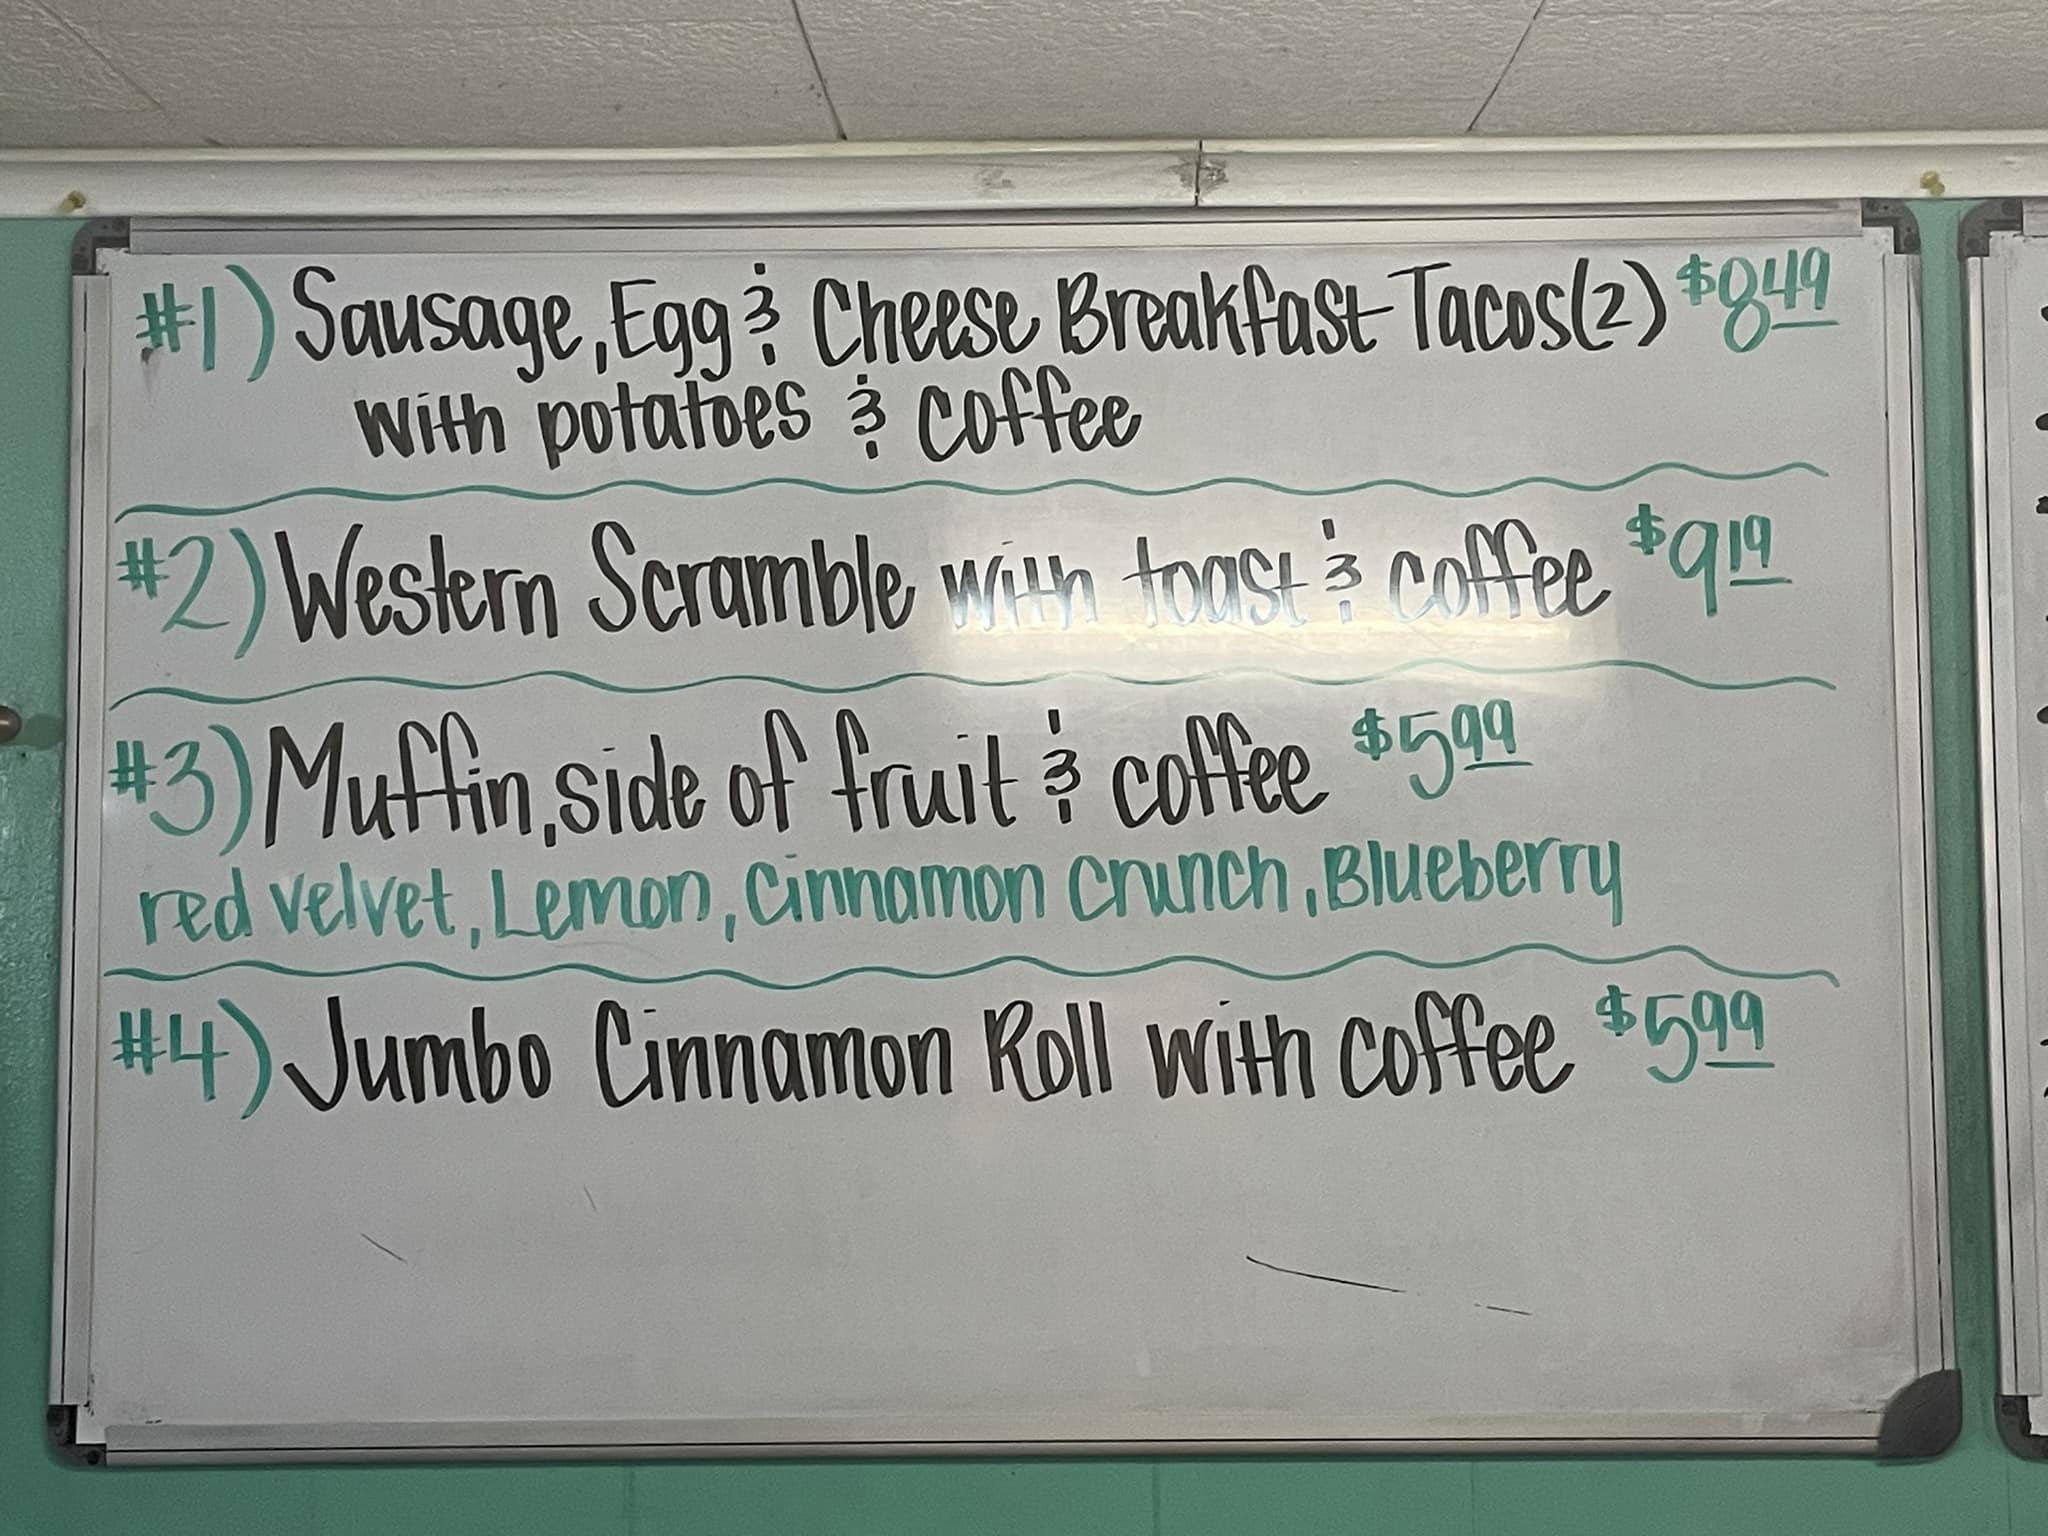 #1) Sausage, Egg & Cheese Breakfast Tacos(2) $8.49
with potatoes & coffee
#2) Western Scramble with toast & coffee $9.19
#3) Muffin, side of fruit & coffee $5.99
red velvet, Lemon, Cinnamon Crunch, Blueberry
#4) Jumbo Cinnamon Roll with coffee $5.99